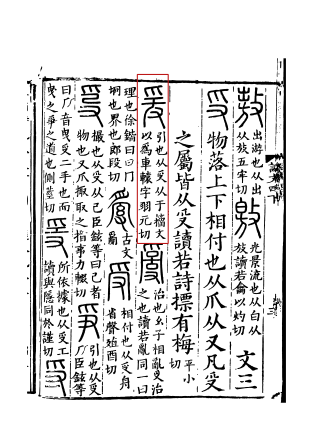 敖出游也从出从放五牢切敫光景流也从白从放讀若龠以灼切文三
𠬪物落上下相付也从爪从又凡𠬪
之屬皆从𠬪讀若詩摽有梅平小切
爰引也从𠬪从于籒文以爲車轅字羽元切𤔔治也幺子相亂𠬪治之也讀若亂同一曰
理也徐鍇曰冂坰也界也郎段切古文𤔔受相付也从𠬪舟省聲殖酉切
撮也从𠬪从己臣鉉等曰己者物也又爪掫取之指事力輟切爭引也从𠬪𠂆臣鉉等
曰𠂆音曳𠬪二手也而曳之爭之道也側莖切𤔌所依據也从𠬪工讀與隱同於謹切